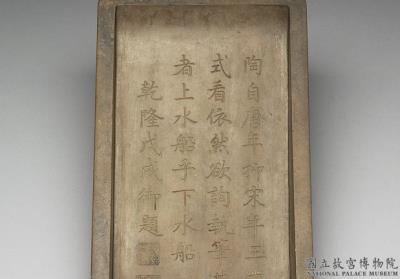 陶自唐年抑宋年三
式看依然欲詢執筆
者上水船乎下水船
乾隆戊戌御題
國立故宮博物院
NATIONAL PALACE MUSEUM